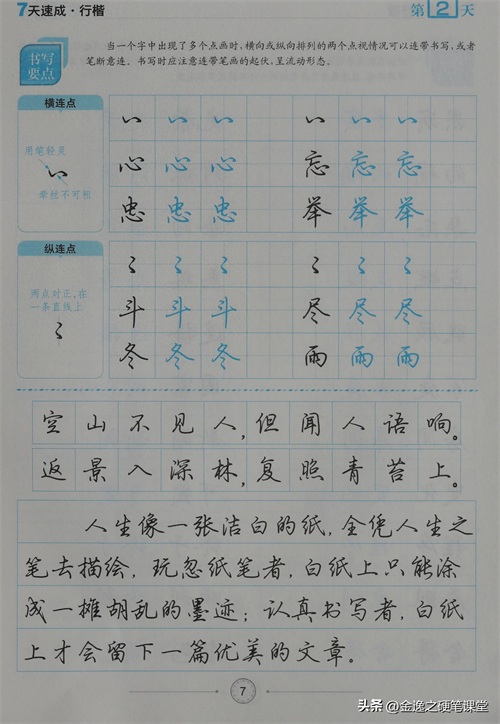 7天速成·行楷
第2天
书写要点
当一个字中出现了多个点画时,横向或纵向排列的两个点视情况可以连带书写,或者
笔断意连。书写时应注意连带笔画的起伏,呈流动形态。
横连点
用笔轻灵
牵丝不可粗
心 心 心 忘 忘 忘
忠 忠 忠 举 举 举
纵连点
两点对正,在
一条直线上
斗 斗 斗 尽 尽 尽
冬 冬 冬 雨 雨 雨
空山不见人,但闻人语响。
返景入深林,复照青苔上。
人生像一张洁白的纸,全凭人生之
笔去描绘,玩忽纸笔者,白纸上只能涂
成一摊胡乱的墨迹;认真书写者,白纸
上才会留下一篇优美的文章。
7
头条 @金逸之硬笔课堂